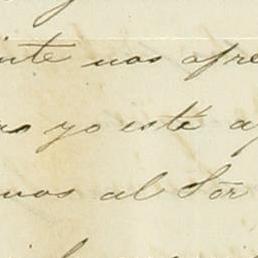 inte nos afre
yo esté a
mos al Sōr